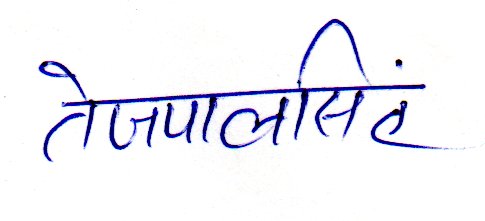 तेजपालसिंह